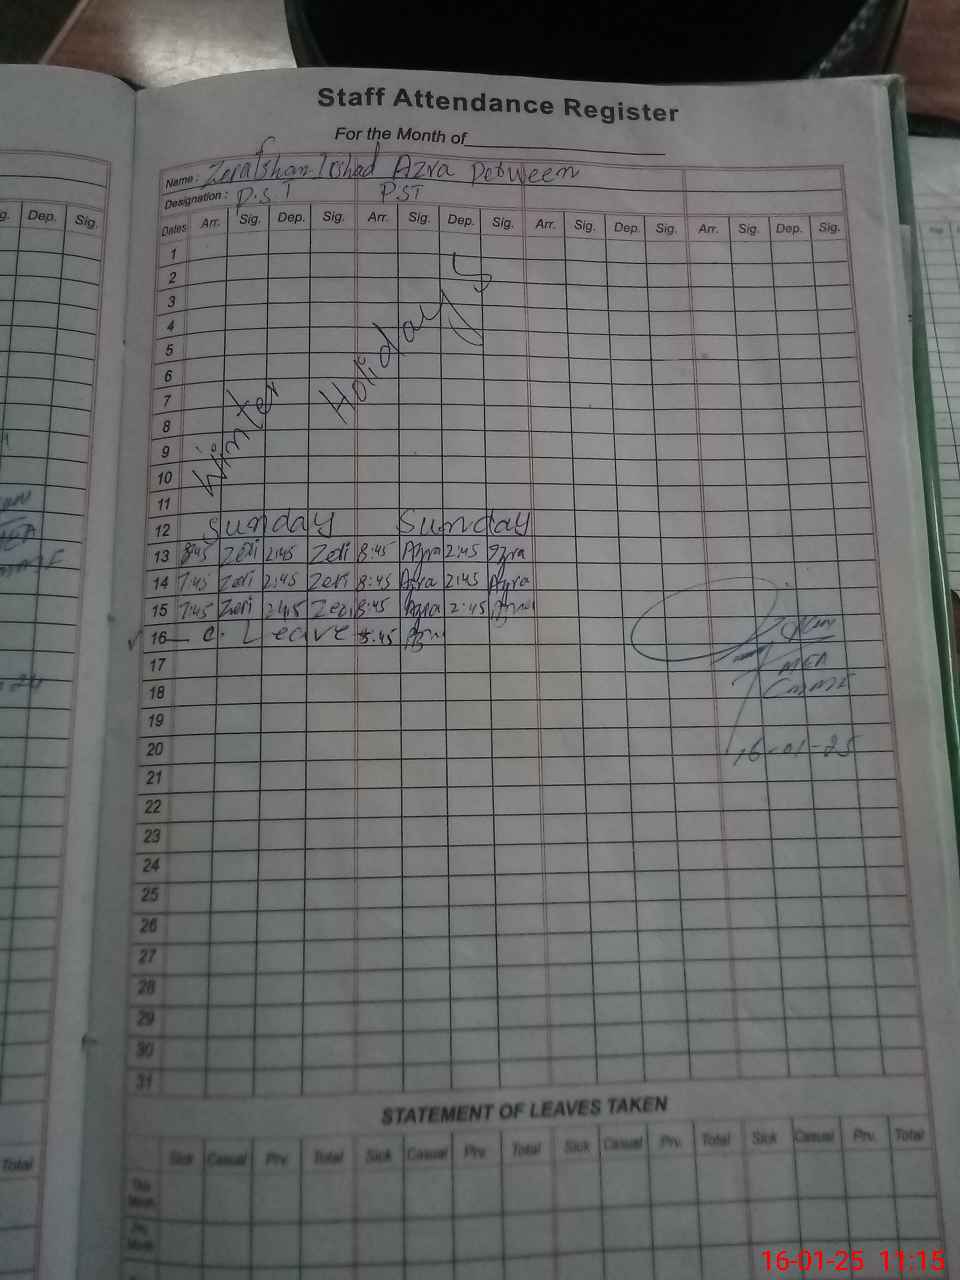 Staff Attendance Register
For the Month of
Name: Zerafshan Irshad Azra Perween
Designation: P.S T P.ST
g. Dep. Sig.
Dates Arr. Sig. Dep. Sig. Arr. Sig. Dep. Sig. Arr. Sig. Dep. Sig. Arr. Sig. Dep. Sig.
1
2
3
4
5
6
7
8
9
10
11
Winter Holidays
12 Sunday Sunday
13 8:45 Zeri 2:45 Zeri 8:45 Azra 2:45 Azra
14 7:45 Zeri 2:45 Zeri 8:45 Azra 2:45 Azra
15 7:45 Zeri 2:45 Zeri 8:45 Azra 2:45 Azra
16 C. Leave 8:45 Azra
17
MEA
18
19
20
16-01-25
21
22
23
24
25
26
27
28
29
30
31
STATEMENT OF LEAVES TAKEN
Sick Casual Prv. Total Sick Casual Prv. Total Sick Casual Prv. Total Sick Casual Prv. Total
Total
This Month
Prv. Month
16-01-25 11:15